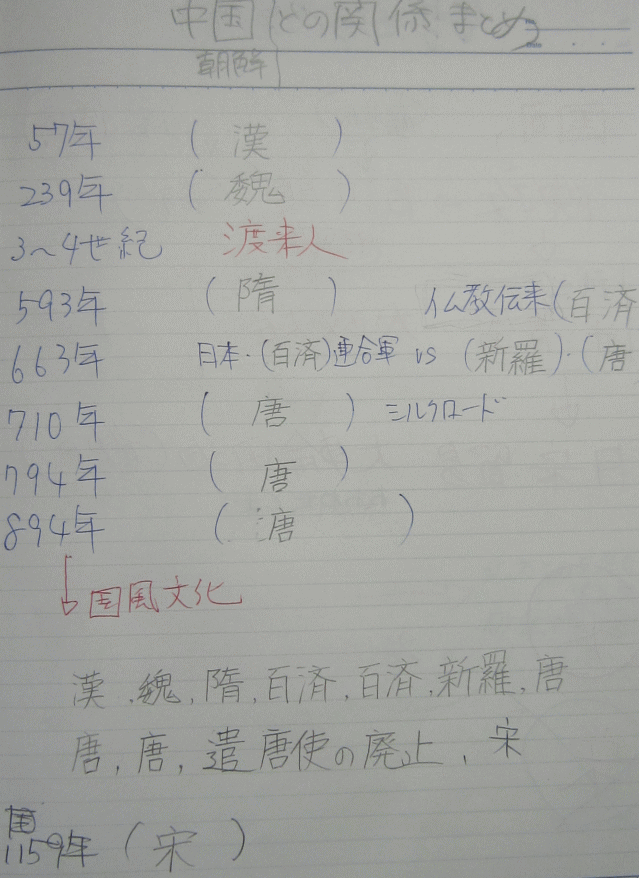 中国との関係まとめ2
朝鮮
57年 (漢)
239年 (魏)
3〜4世紀 渡来人
593年 (隋) 仏教伝来(百済
663年 日本・(百済)連合軍 vs (新羅)・(唐
710年 (唐) シルクロード
794年 (唐)
894年 (唐)
国風文化
漢,魏,隋,百済,百済,新羅,唐
唐,唐,遣唐使の廃止,宋
1159年 (宋)